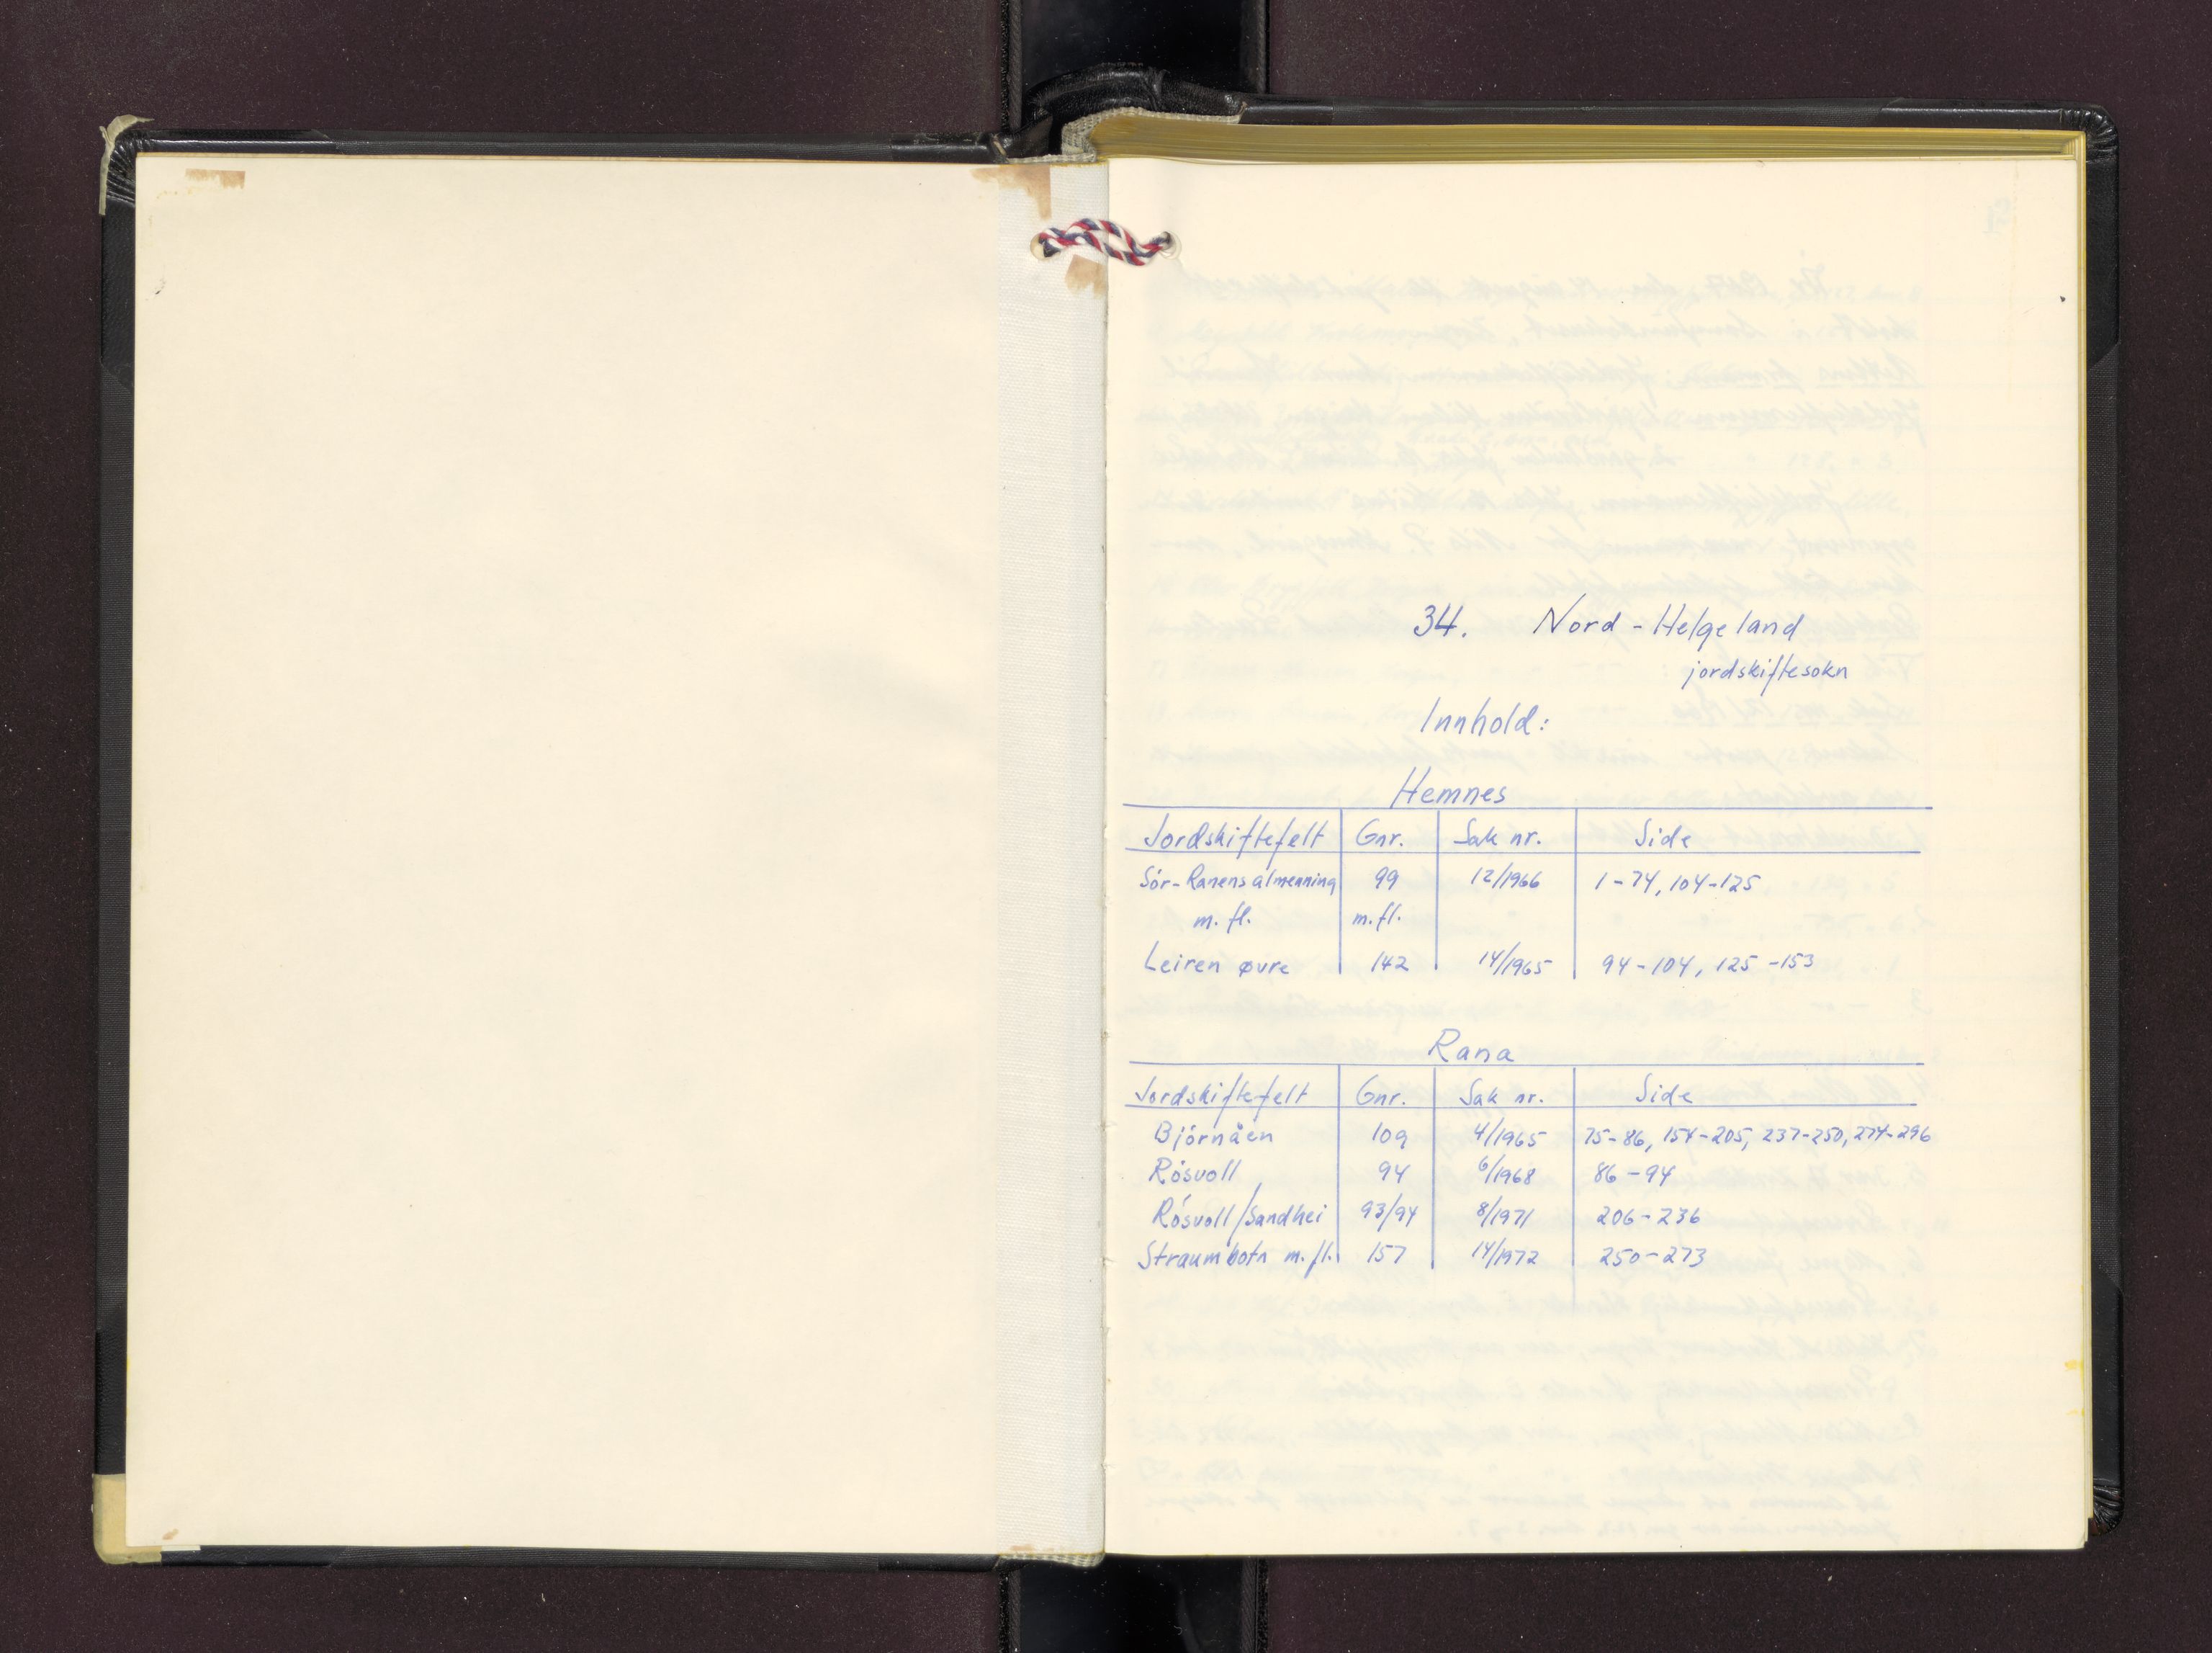 34. Nord-Helgeland
jordskiftesokn
Innhold:
Hemnes
Jordskiftefelt Gnr. Sak nr. Side
Sór-Ranens almenning 99 12/1966 1-74, 104-125
m.fl. m.fl.
Leiren øvre 142 14/1965 94-104, 125-153
Rana
Jordskiftefelt Gnr. Sak nr. Side
Bjórnåen 109 4/1965 75-86, 154-205, 237-250, 274-296
Rósvoll 94 6/1968 86-94
Rósvoll/Sandhei 93/94 8/1971 206-236
Straumbotn m.fl. 157 14/1972 250-273